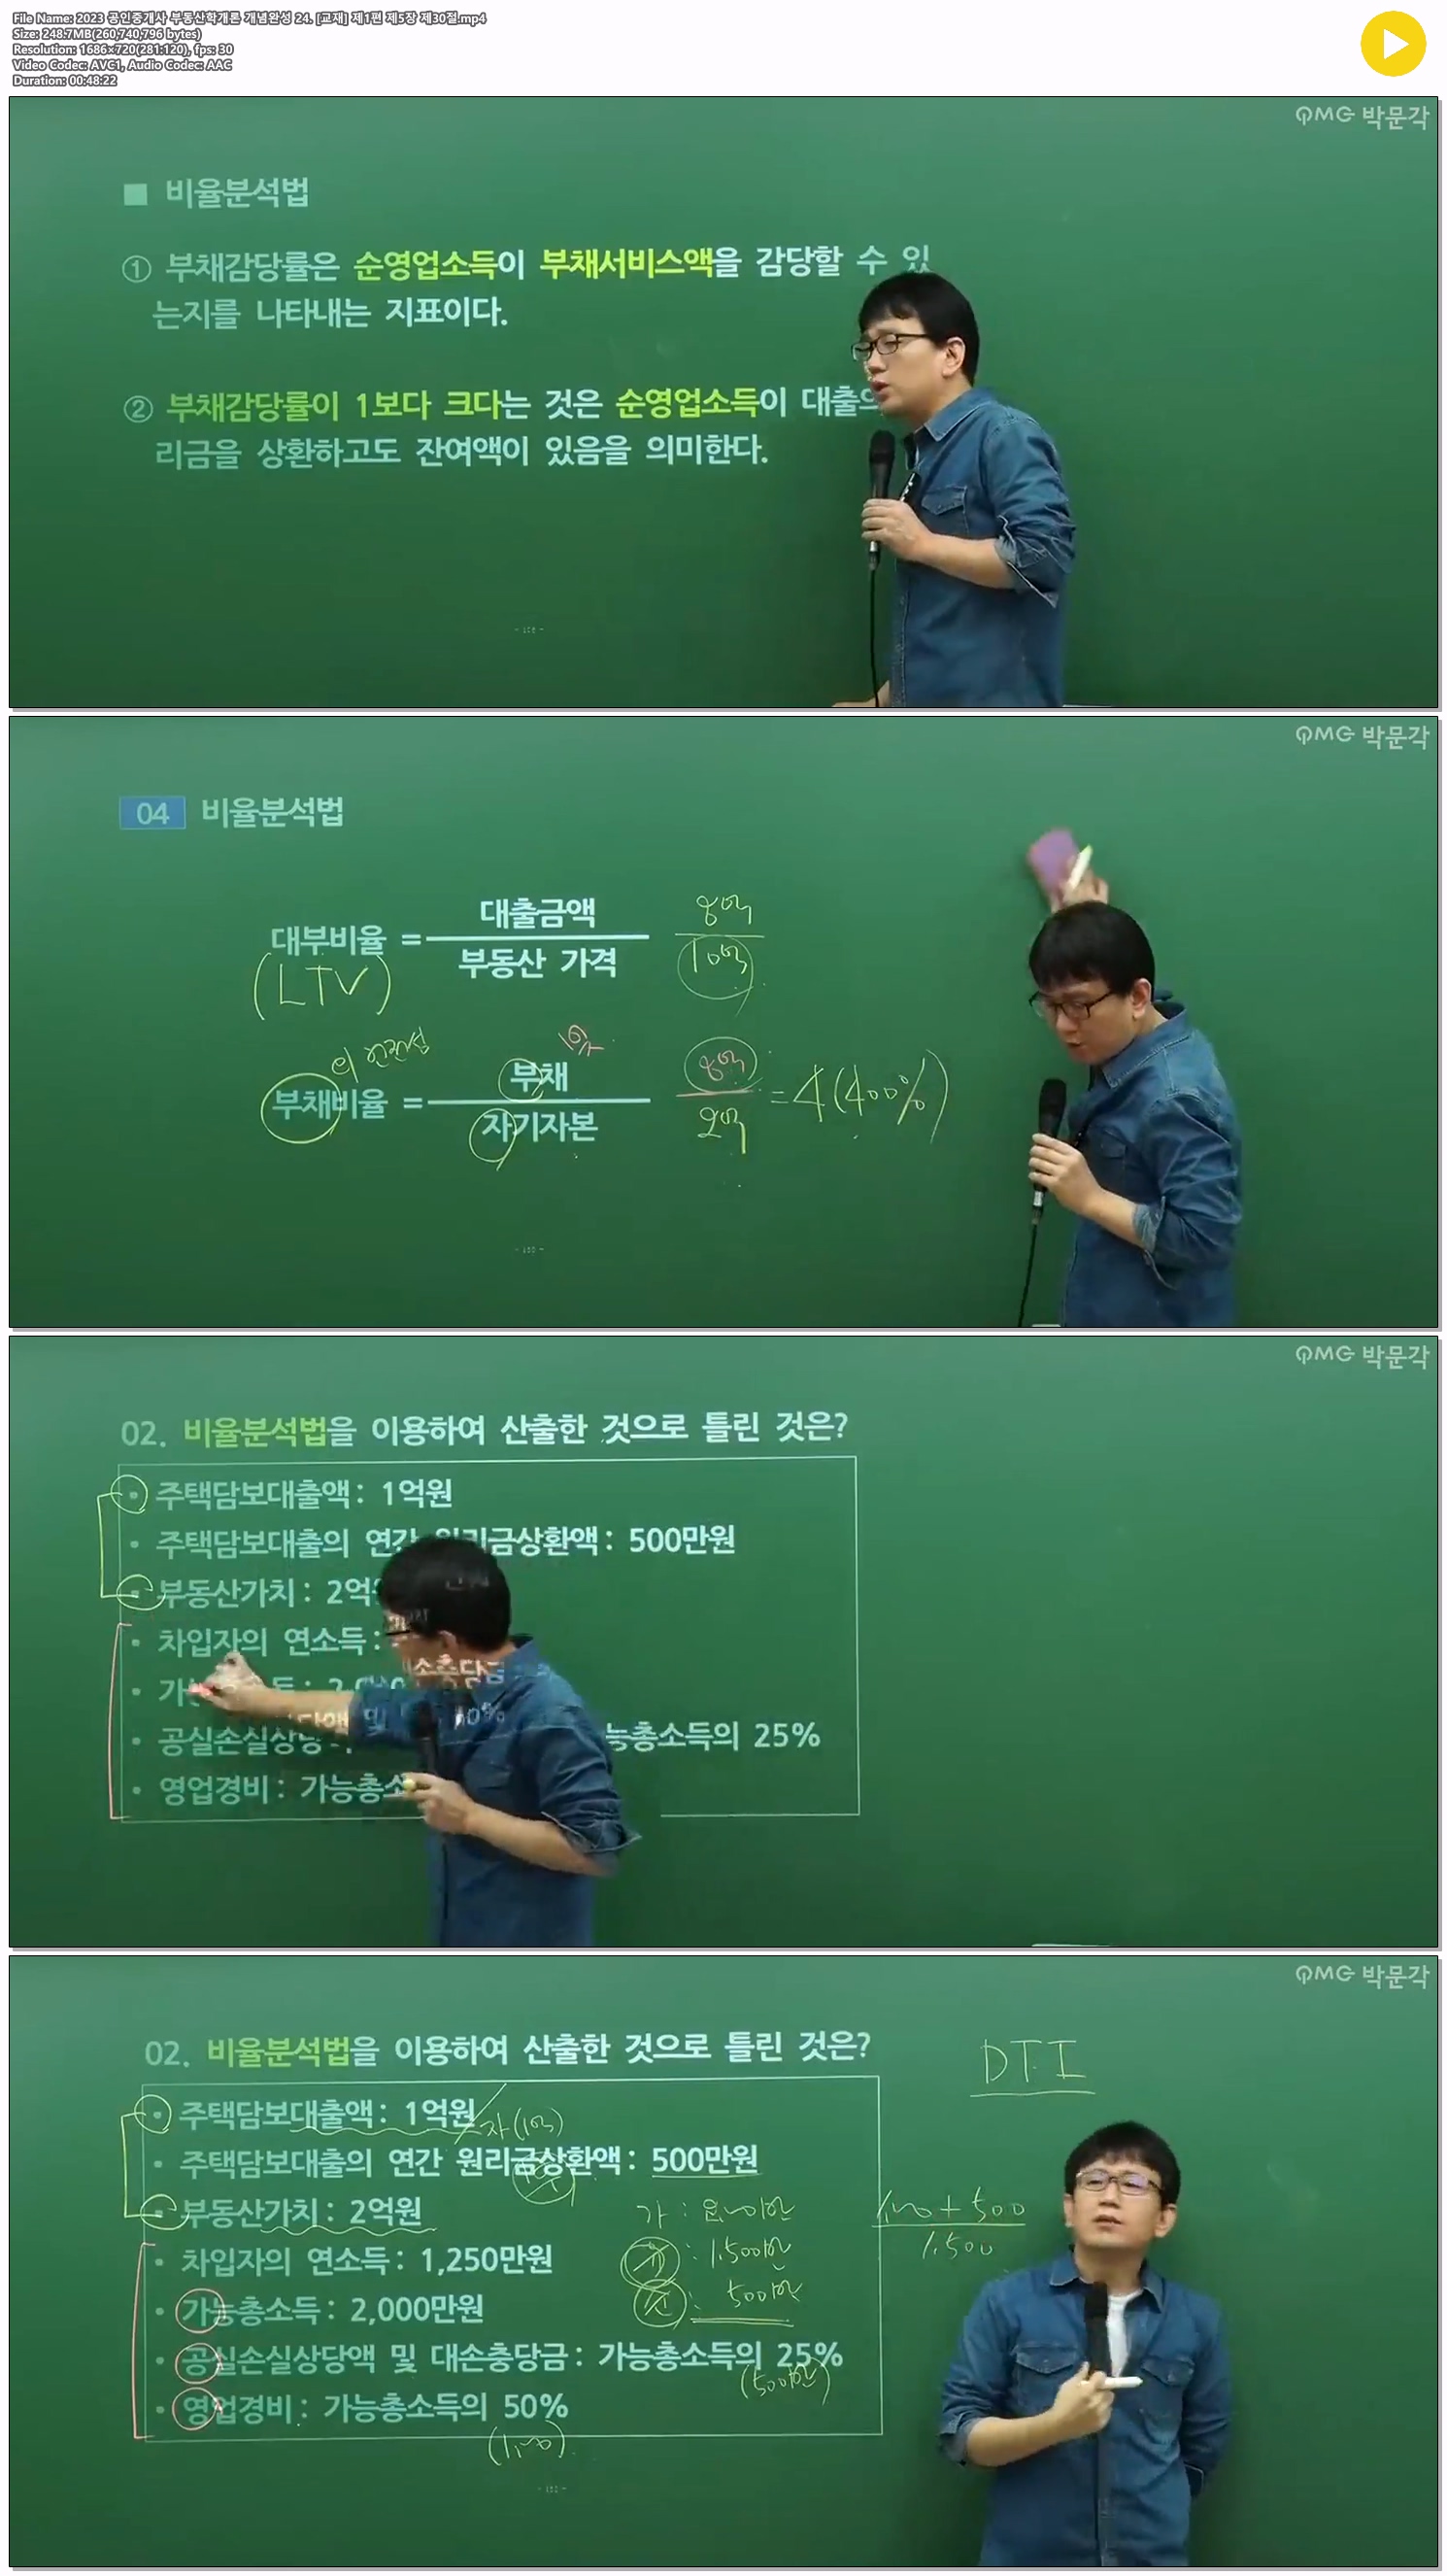 File Name: 2023 공인중개사 부동산학개론 개념완성 24. [교재] 제1편 제5장 제30절.mp4
Size: 248.7MB(260,740,796 bytes)
Resolution: 1686×720(281:120), fps: 30
Video Codec: AVC1, Audio Codec: AAC
Duration: 00:48:22
PMG 박문각
■ 비율분석법
① 부채감당률은 순영업소득이 부채서비스액을 감당할 수 있
는지를 나타내는 지표이다.
② 부채감당률이 1보다 크다는 것은 순영업소득이 대출의
리금을 상환하고도 잔여액이 있음을 의미한다.
PMG 박문각
04 비율분석법
대출금액 8억
대부비율 =
부동산 가격 10억
(LTV)
부채 8억
부채비율 = = 4(400%)
자기자본 2억
PMG 박문각
02. 비율분석법을 이용하여 산출한 것으로 틀린 것은?
• 주택담보대출액: 1억원
• 주택담보대출의 연간 원리금상환액: 500만원
• 부동산가치: 2억
• 차입자의 연소득:
• 가
• 공실손실상당 능총소득의 25%
• 영업경비: 가능총소
PMG 박문각
02. 비율분석법을 이용하여 산출한 것으로 틀린 것은?
DTI
• 주택담보대출액: 1억원
자(1억)
• 주택담보대출의 연간 원리금상환액: 500만원
• 부동산가치: 2억원
가:
• 차입자의 연소득: 1,250만원
: 1,500만
1,500
• 가능총소득: 2,000만원
순: 500만
• 공실손실상당액 및 대손충당금: 가능총소득의 25%
(500만)
• 영업경비: 가능총소득의 50%